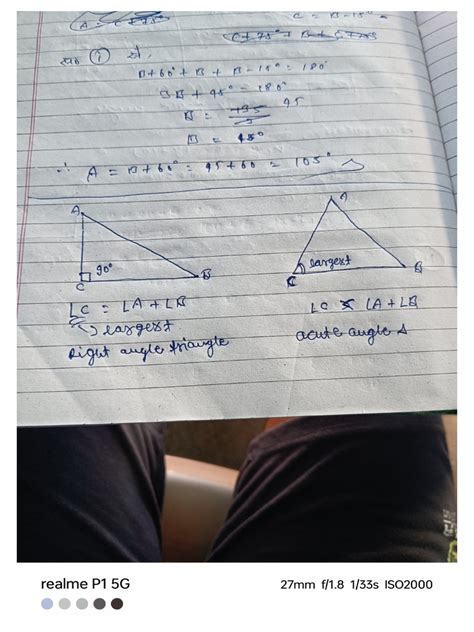 A = C + 75°
C = B - 15° =
C + 75° + B + C + 75
समी ① से,
B + 60° + B + B - 15° = 180°
3B + 45° = 180°
B = 135 45
3
B = 45°
∴ A = B + 60° = 45 + 60 = 105°
A
A
90°
C
B
largest
C
B
∠C = ∠A + ∠B
∠C < ∠A + ∠B
largest
acute angle Δ
Right angle triangle
realme P1 5G
27mm f/1.8 1/33s ISO2000